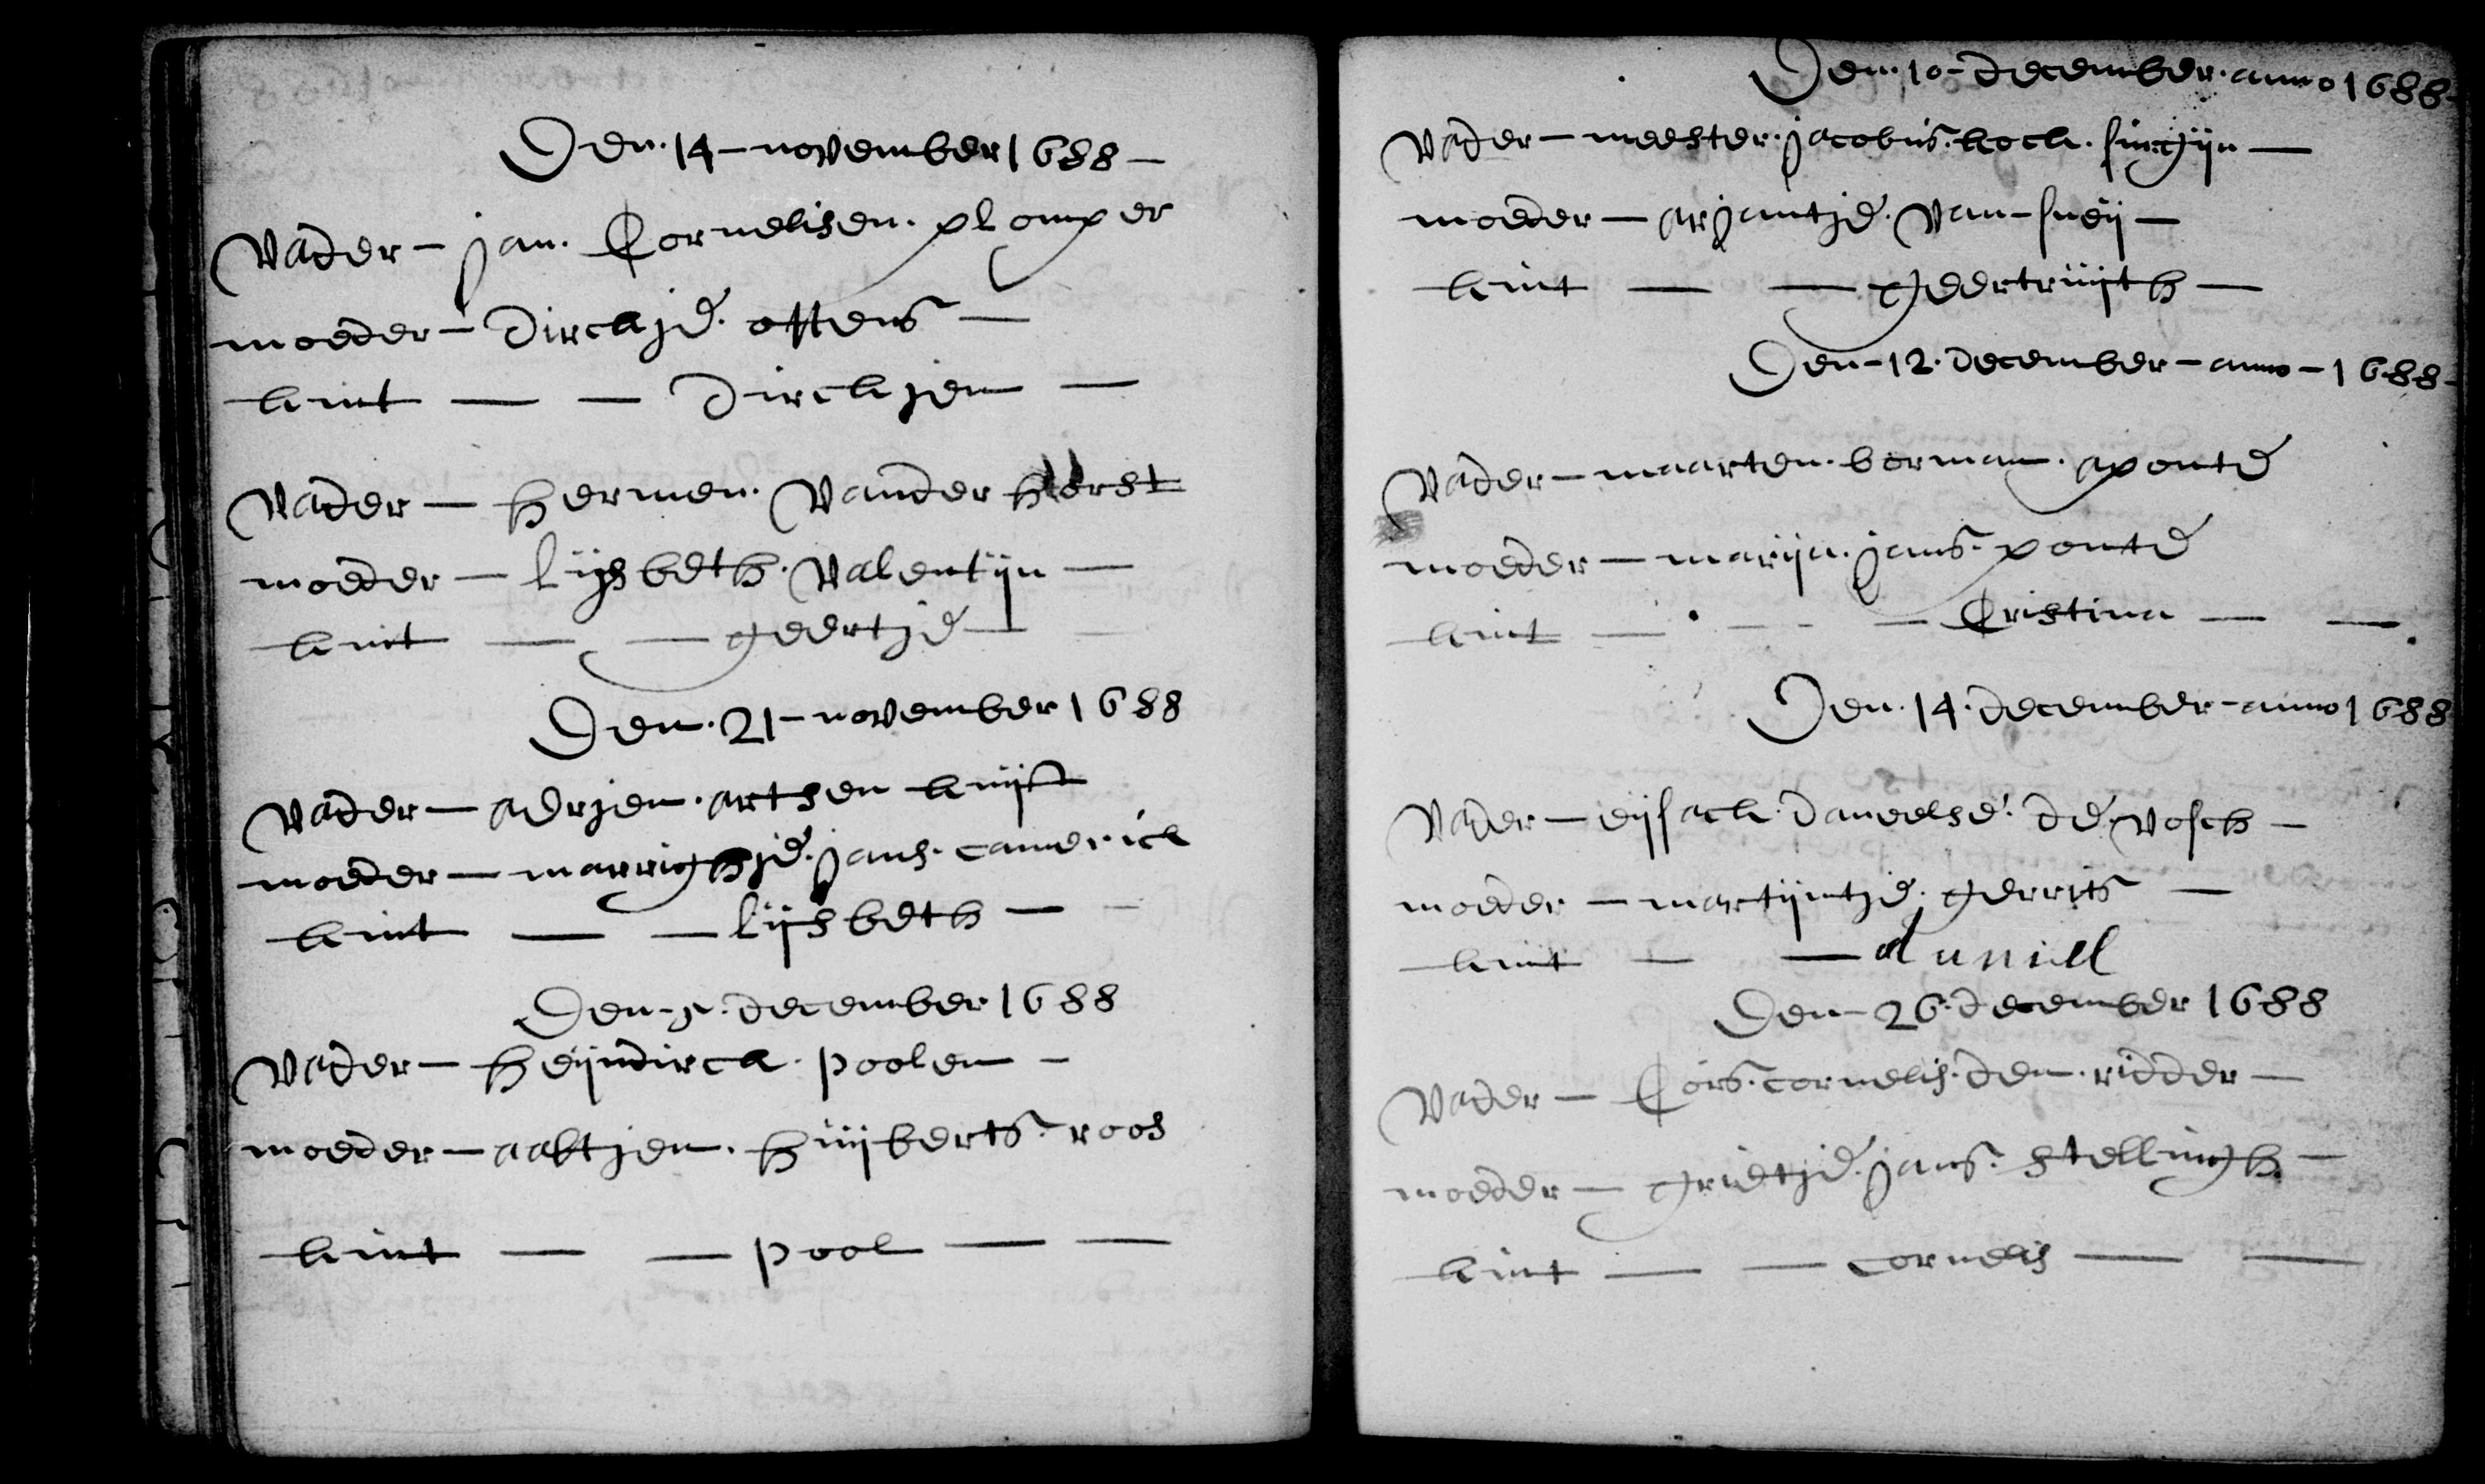 Den. 14 - november 1688 -
Vader - jan. Cornelisen. plomper
moeder - Dirckje. ottens -
kint - - Dirckjen -
Vader - hermen. Vander horst
moeder - lijsbeth. Valentijn -
kint - - geertje -
Den. 21 - november 1688
Vader - adrjen. artsen kuijst
moeder - marrighje. jans. camerick
kint - - lijsbeth -
Den - 5. december 1688
Vader - heijndirck. poolen -
moeder - aaltjen. huijberts. roos
kint - - pool - -
Den. 10 - december. anno 1688 -
Vader - meester. jacobus. kock. surgijn -
moeder - arjaantje. Van - sneij -
kint - - geertruijth -
Den - 12. december - anno - 1688 -
Vader - maarten. borman. aponte
moeder - marija. jans. ponte
kint - - Cristina - -
Den. 14. december - anno 1688
Vader - eijsack. daneelse. de. Vosch -
moeder - martijntje. gerrits -
kint - - daniell
Den - 26. december 1688
Vader - Cors. cornelis. den. ridder -
moeder - grietje. jans. stellingh. -
kint - - cornelis - -